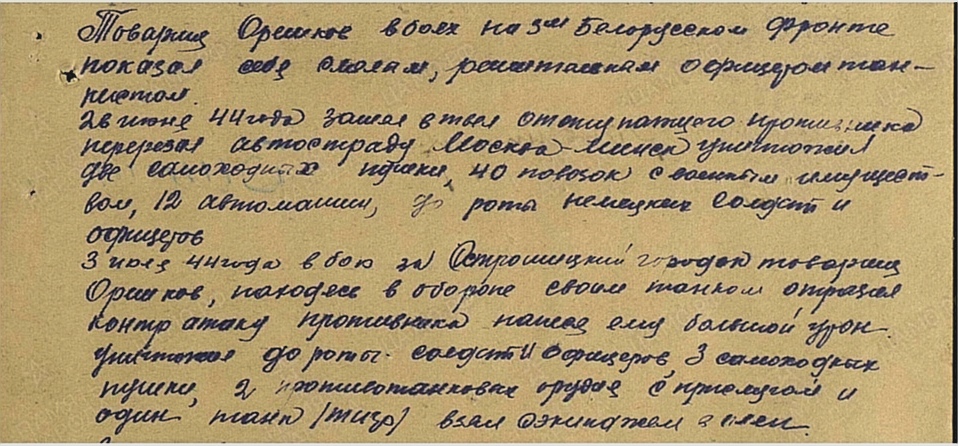 Товарищ Орешков в боях на 3м Белорусском фронте
показал себя смелым, решительным офицером тан-
кистом.
26 июня 44 года зашел в тыл отступающего противника
перерезал автостраду Москва-Минск уничтожил
две самоходных пушки, 40 повозок с военным имущест-
вом, 12 автомашин, до роты немецких солдат и
офицеров
3 июля 44 года в бою за Острошицкий городок товарищ
Орешков, находясь в обороне своим танком отразил
контратаку противника нанеся ему большой урон
уничтожил до роты солдат и офицеров, 3 самоходных
пушки, 2 противотанковых орудия с прислугой и
один танк (тигр) взял с экипажем в плен.